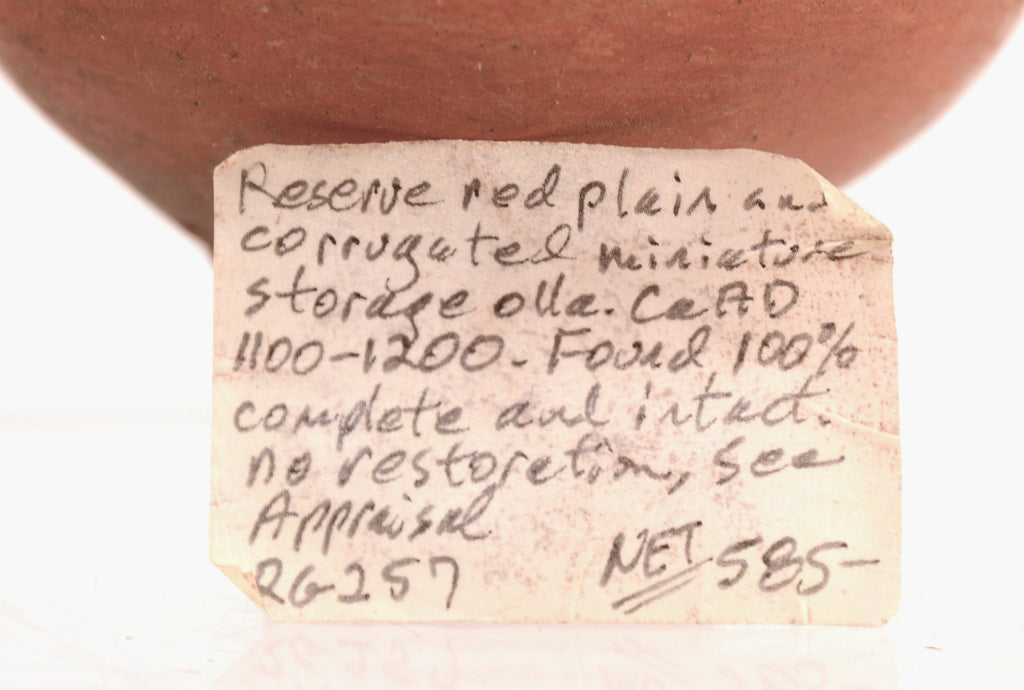 Reserve red plain and
corrugated miniature
storage olla. Ca AD
1100-1200. Found 100%
complete and intact.
no restoration, see
Appraisal
RG-257 NET 585-